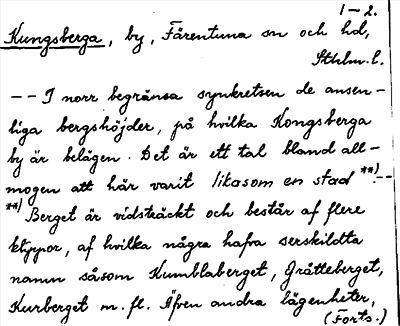 1-2.
Kungsberga, by, Färentuna sn och hd,
Sthlm. l.
-- I norr begränsa synkretsen de ansen-
liga bergshöjder, på hvilka Kongsberga
by är belägen. Det är ett tal bland all-
mogen att här varit likasom en stad **). --
**) Berget är vidsträckt och består af flere
klippor, af hvilka några hafva serskildta
namn såsom Kumblaberget, Gråtteberget,
Kurberget m. fl. Äfven andra lägenheter,
(Forts.)